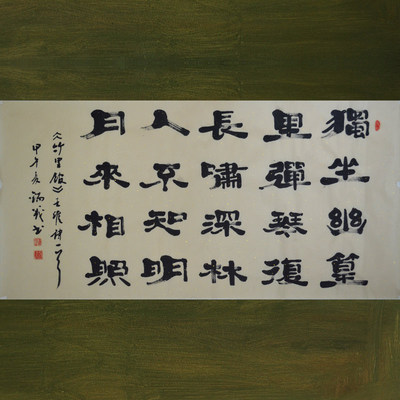 獨坐幽篁
里彈琴復
長嘯深林
人不知明
月來相照
《竹里館》王維詩一首
甲午夏 書